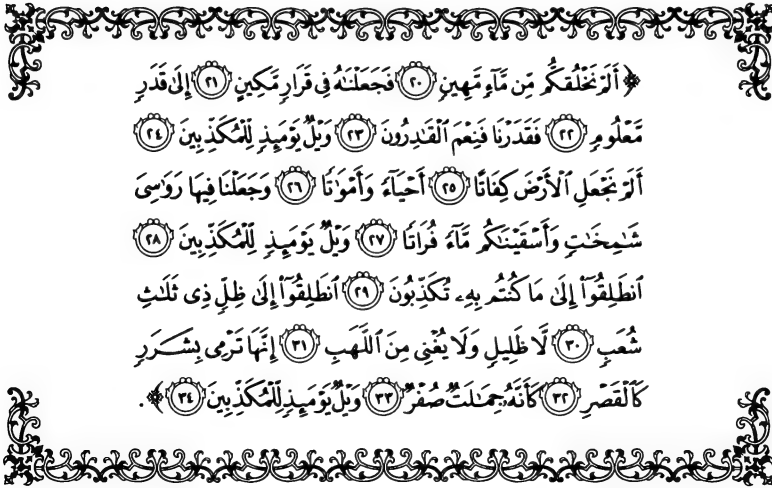 ﴿ أَلَمْ نَخْلُقكُّم مِّن مَّآءٍ مَّهِينٍ ٢٠ فَجَعَلْنَٰهُ فِى قَرَارٍ مَّكِينٍ ٢١ إِلَىٰ قَدَرٍ
مَّعْلُومٍ ٢٢ فَقَدَرْنَا فَنِعْمَ ٱلْقَٰدِرُونَ ٢٣ وَيْلٌ يَوْمَئِذٍ لِّلْمُكَذِّبِينَ ٢٤
أَلَمْ نَجْعَلِ ٱلْأَرْضَ كِفَاتًا ٢٥ أَحْيَآءً وَأَمْوَٰتًا ٢٦ وَجَعَلْنَا فِيهَا رَوَٰسِىَ
شَٰمِخَٰتٍ وَأَسْقَيْنَٰكُم مَّآءً فُرَاتًا ٢٧ وَيْلٌ يَوْمَئِذٍ لِّلْمُكَذِّبِينَ ٢٨
ٱنطَلِقُوٓا۟ إِلَىٰ مَا كُنتُم بِهِۦ تُكَذِّبُونَ ٢٩ ٱنطَلِقُوٓا۟ إِلَىٰ ظِلٍّ ذِى ثَلَٰثِ
شُعَبٍ ٣٠ لَّا ظَلِيلٍ وَلَا يُغْنِى مِنَ ٱللَّهَبِ ٣١ إِنَّهَا تَرْمِى بِشَرَرٍ
كَٱلْقَصْرِ ٣٢ كَأَنَّهُۥ جِمَٰلَتٌ صُفْرٌ ٣٣ وَيْلٌ يَوْمَئِذٍ لِّلْمُكَذِّبِينَ ٣٤ ﴾ .